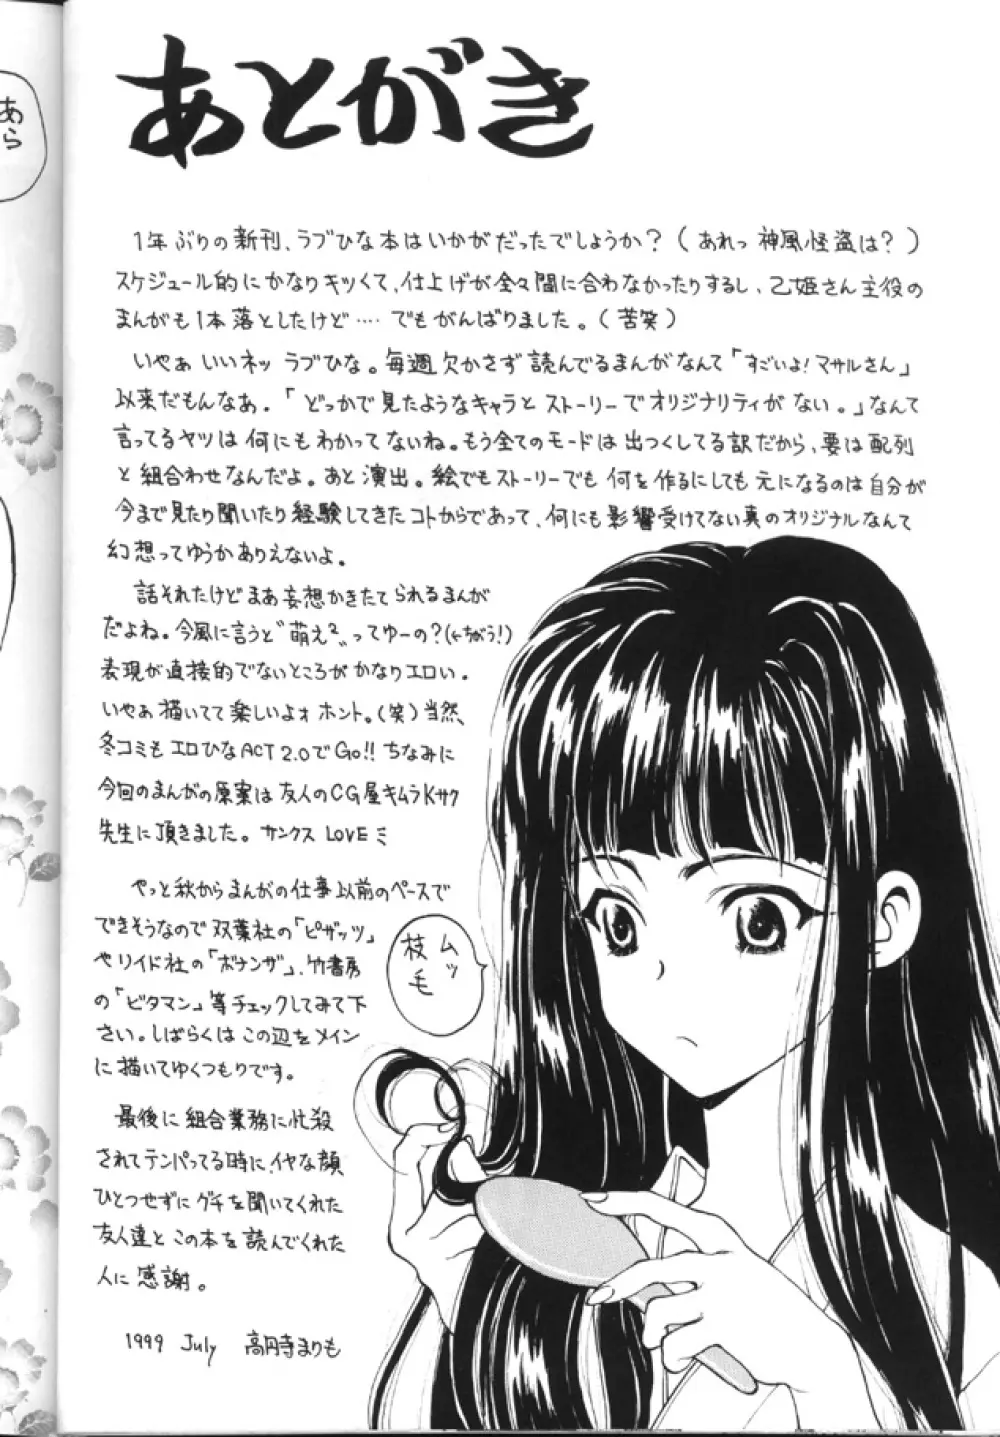 あとがき
1年ぶりの新刊、ラブひな本はいかがだったでしょうか？（あれっ 神風怪盗は？）
スケジュール的にかなりキツくて、仕上げが全々間に合わなかったりするし、乙姫さん主役の
まんがも1本落としたけど‥‥でもがんばりました。（苦笑）
いやぁ いいネッ ラブひな。毎週欠かさず読んでるまんがなんて「すごいよ！マサルさん」
以来だもんなあ。「どっかで見たようなキャラとストーリーでオリジナリティがない。」なんて
言ってるヤツは何にもわかってないね。もう全てのモードは出つくしてる訳だから、要は配列
と組合わせなんだよ。あと演出。絵でもストーリーでも何を作るにしても元になるのは自分が
今まで見たり聞いたり経験してきたコトからであって、何にも影響受けてない真のオリジナルなんて
幻想ってゆうかありえないよ。
話それたけどまあ妄想かきたてられるまんが
だよね。今風に言うと〝萌え²〟ってゆーの？（←ちがう！）
表現が直接的でないところがかなりエロい。
いやぁ描いてて楽しいよォ ホント。（笑）当然、
冬コミもエロひなACT 2.0でGo!! ちなみに
今回のまんがの原案は友人のCG屋キムラKサク
先生に頂きました。サンクス LOVE ミ
やっと秋からまんがの仕事以前のペースで
できそうなので双葉社の「ピザッツ」
やリイド社の「ボナンザ」、竹書房
の「ビタマン」等チェックしてみて下
さい。しばらくはこの辺をメイン
に描いてゆくつもりです。
最後に組合業務に忙殺
されてテンパってる時に、イヤな顔
ひとつせずにグチを聞いてくれた
友人達とこの本を読んでくれた
人に感謝。
1999 July 高円寺まりも
ムッ
枝毛
あら